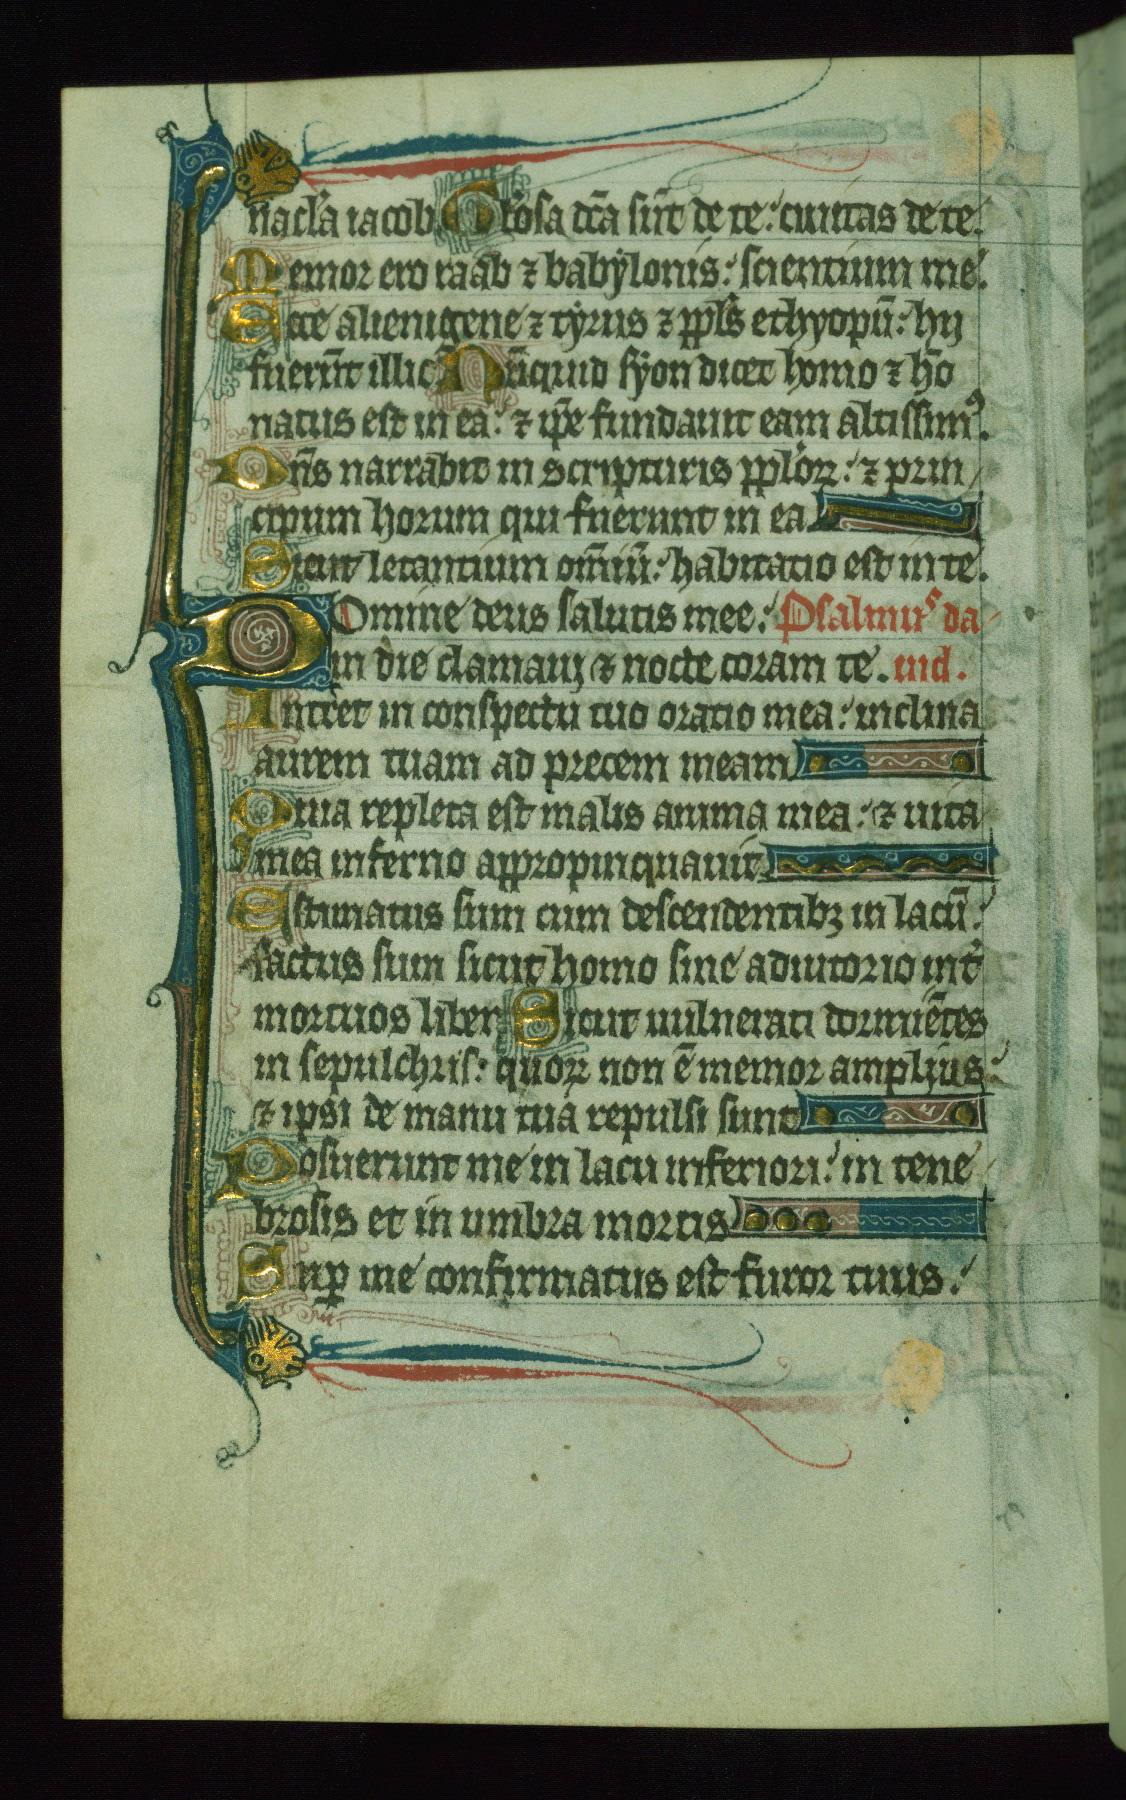 nacl̃a iacob Glõsa dc̃a sũt de te: ciuitas de te.
Memor ero raab ⁊ babylonis: scientium me.
Ecce alienigene ⁊ tyrus ⁊ ppl̃s ethyopũ: hij
fuerũt illic Nũquid syon dicet homo ⁊ hõ
natus est in ea: ⁊ ip̃e fundauit eam altissimꝰ.
Dñs narrabit in scripturis pplõꝝ: ⁊ prin
cipum horum qui fuerunt in ea
Sicut letantium om̃iũ: habitatio est in te.
Domine deus salutis mee: Psalmus da
in die clamaui ⁊ nocte coram te. uid.
Intret in conspectu tuo oratio mea: inclina
aurem tuam ad precem meam
Quia repleta est malis anima mea: ⁊ uita
mea inferno appropinquauit
Estimatus sum cum descendentibꝫ in lacũ:
factus sum sicut homo sine adiutorio int̾
mortuos liber Sicut uulnerati dormiẽtes
in sepulchris: quoꝝ non ẽ memor amplius:
⁊ ipsi de manu tua repulsi sunt
Posuerunt me in lacu inferiori: in tene
brosis et in umbra mortis
Suꝑ me confirmatus est furor tuus: